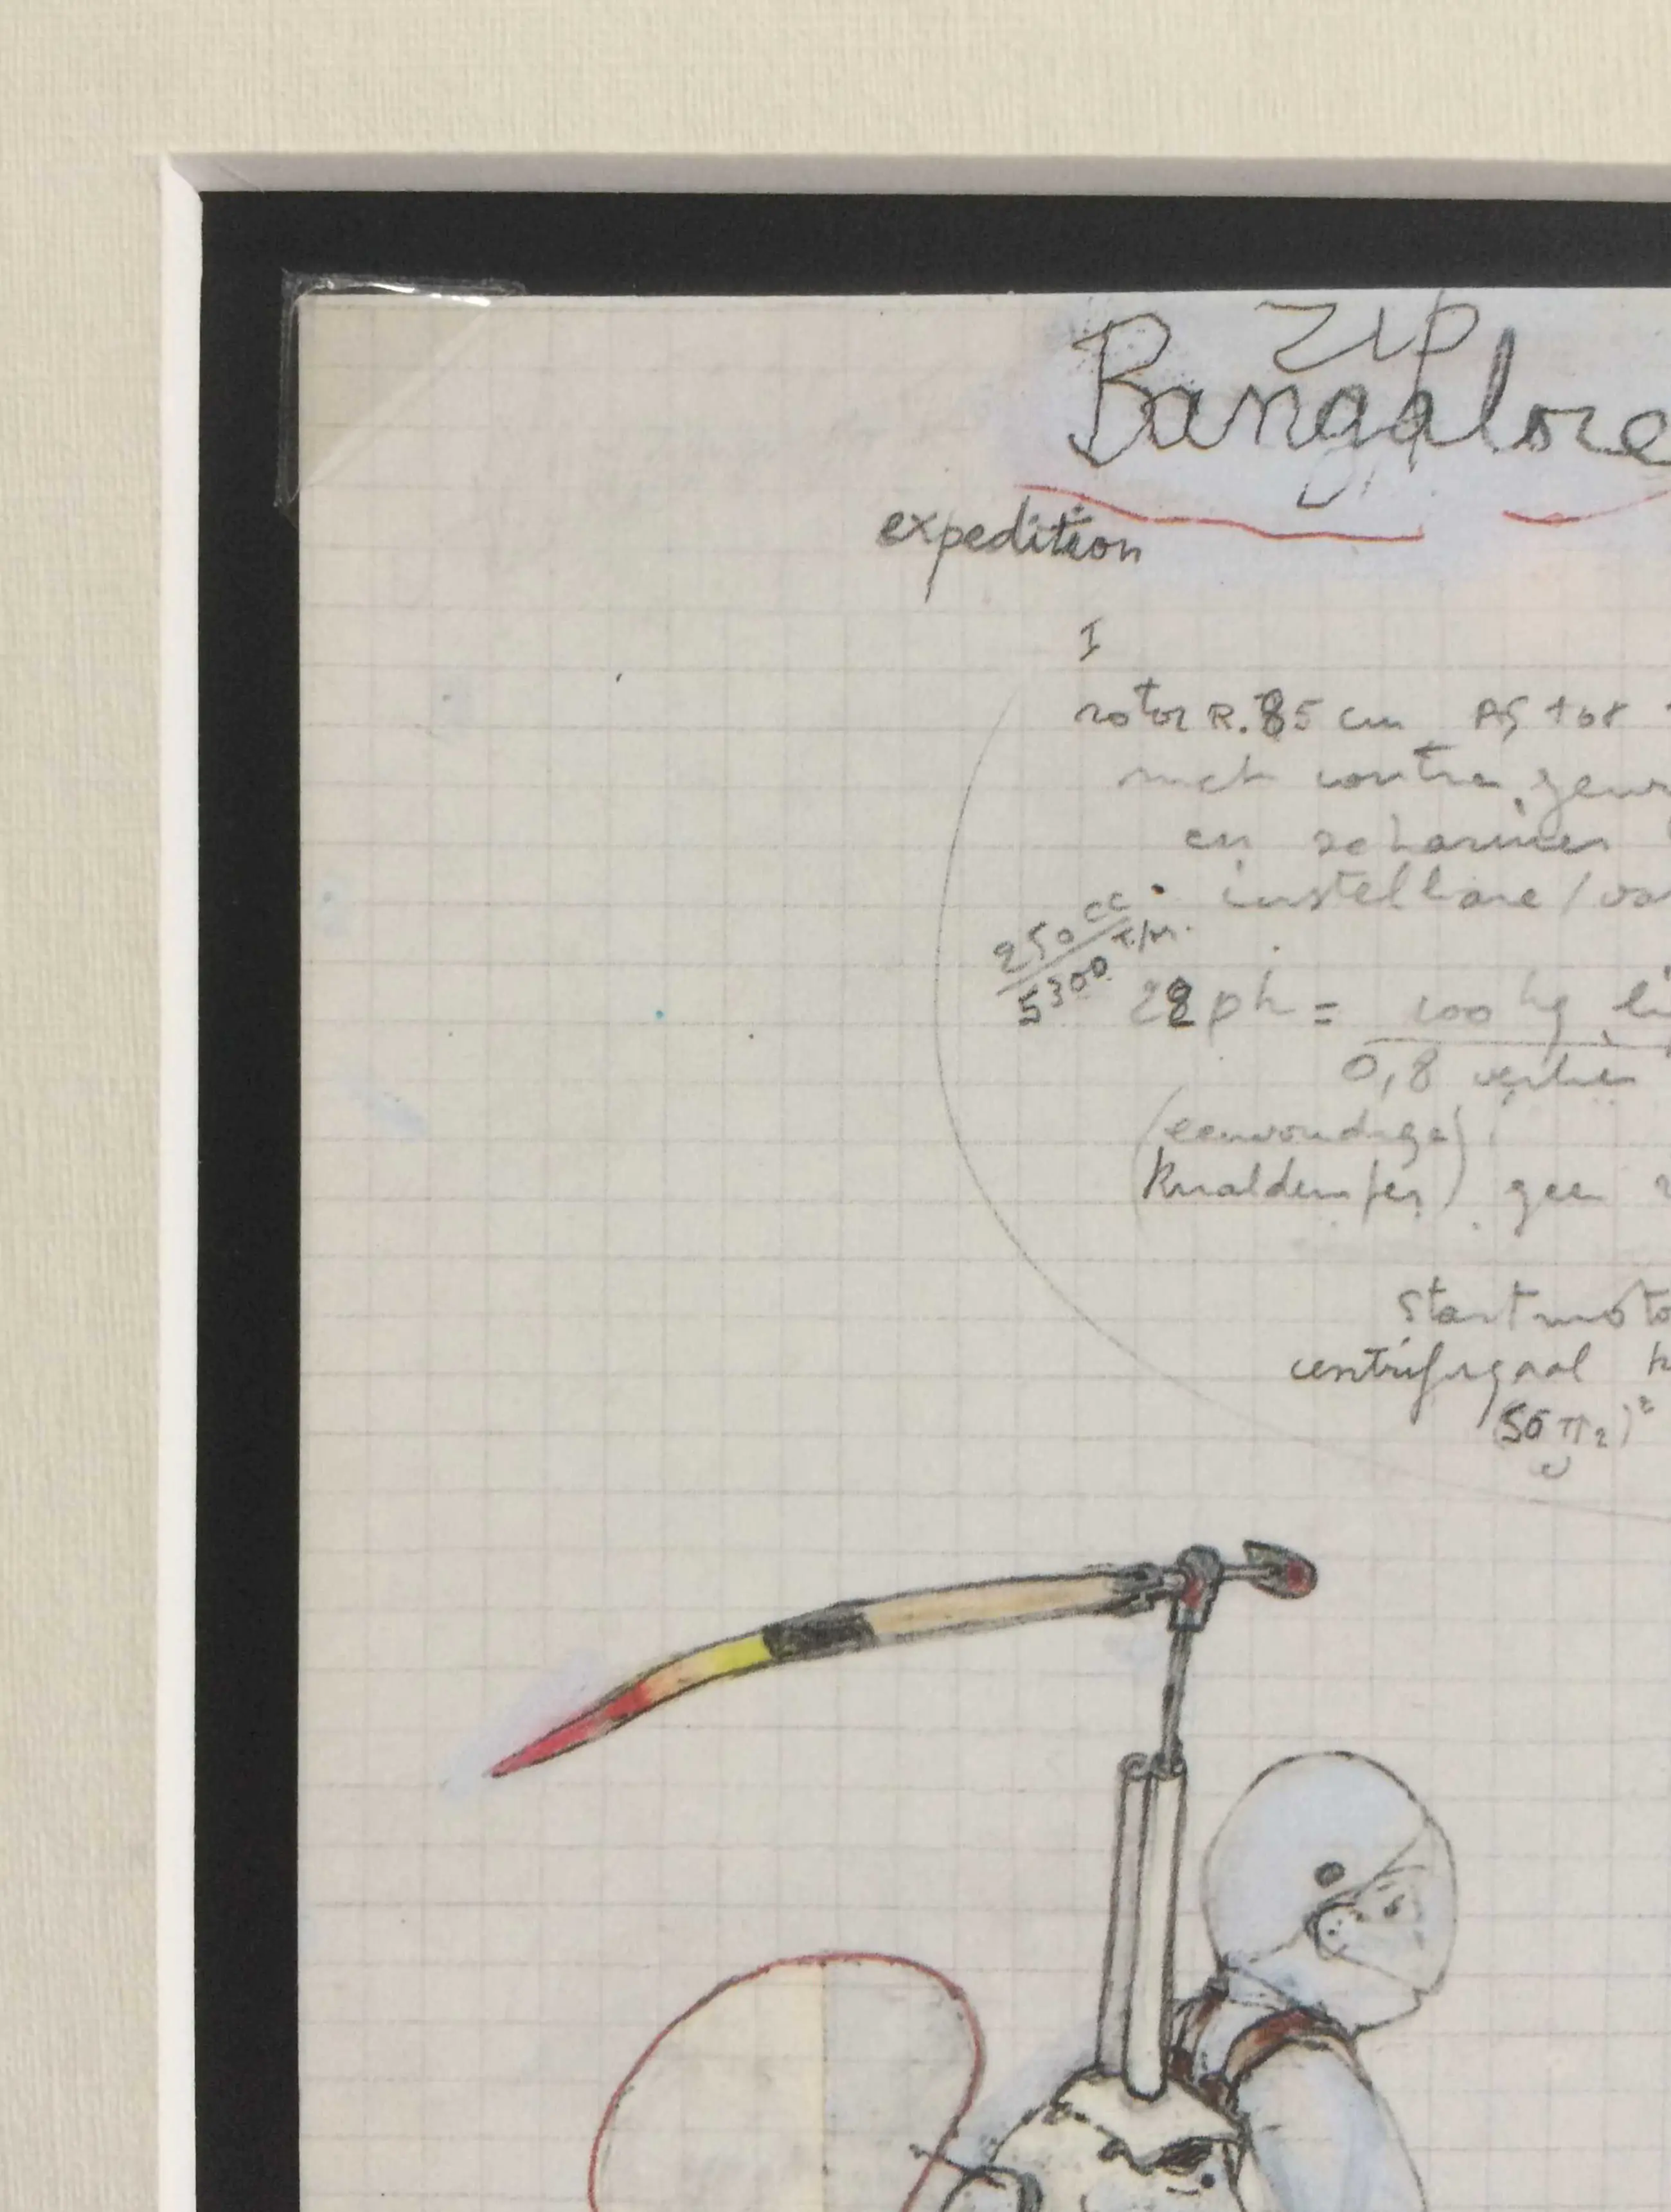 ZIP
Bangalore
expedition
I
rotor R. 85 cm
met contra
en
instelbare /
250 cc
5300 T/M.
28 pk = 100 kg
0,8 verlies
(eenvoudige)
Knaldemper) geen
startmoto
centrifugaal